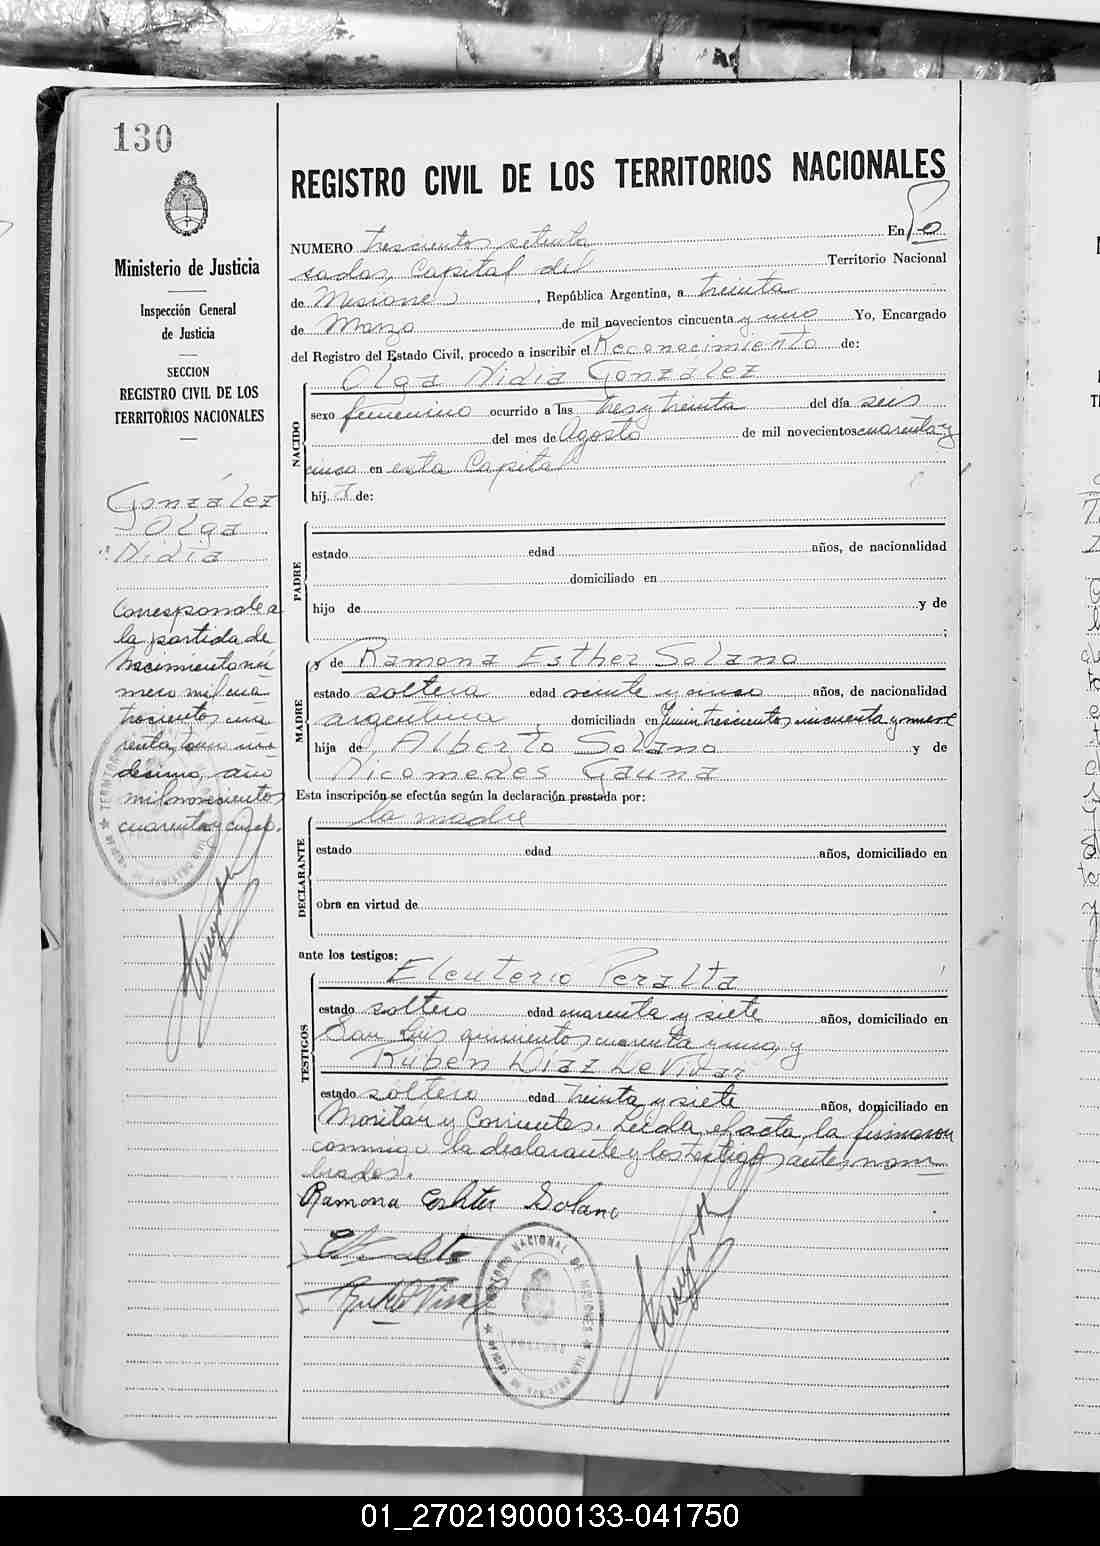 130
Ministerio de Justicia
Inspección General
de Justicia
SECCION
REGISTRO CIVIL DE LOS
TERRITORIOS NACIONALES
González
Olga
Nidia
Corresponde a
la partida de
Nacimiento nú
mero mil cua
trocientos cua
renta, tomo un
décimo, año
mil novecientos
cuarenta y cinco.
REGISTRO CIVIL DE LOS TERRITORIOS NACIONALES
NUMERO trescientos setenta En Po
sadas, Capital del Territorio Nacional
de Misiones, República Argentina, a treinta
de Marzo de mil novecientos cincuenta y uno Yo, Encargado
del Registro del Estado Civil, procedo a inscribir el Reconocimiento de:
Olga Nidia González
NACIDO
sexo femenino ocurrido a las tres y treinta del día seis
del mes de Agosto de mil novecientos cuarenta y
cinco en esta Capital
hij a de:
PADRE
estado edad años, de nacionalidad
domiciliado en
hijo de y de
;
MADRE
y de Ramona Esther Solano
estado soltera edad veinte y cinco años, de nacionalidad
argentina, domiciliada en Junin trescientos cincuenta y nueve
hija de Alberto Solano y de
Nicomedes Gauna
Esta inscripción se efectúa según la declaración prestada por:
la madre
DECLARANTE
estado edad años, domiciliado en
obra en virtud de
ante los testigos:
Eleuterio Peralta
TESTIGOS
estado soltero edad cuarenta y siete años, domiciliado en
San Luis quinientos cuarenta y uno, y
Ruben Diaz De Vivar
estado soltero edad treinta y siete años, domiciliado en
Moritan y Corrientes. Leida el acta, la firmaron
conmigo la declarante y los testigos antes nom
brados.
Ramona Eshter Solano
TERRITORIO NACIONAL DE MISIONES
POSADAS
01_270219000133-041750